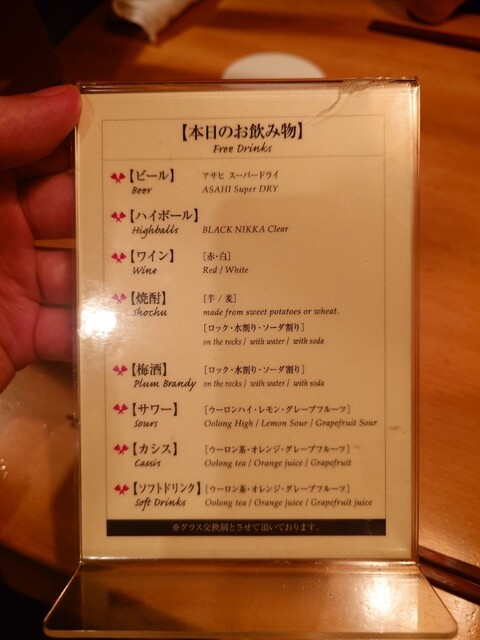 【本日のお飲み物】
Free Drinks
【ビール】 アサヒ スーパードライ
Beer ASAHI Super DRY
【ハイボール】
Highballs BLACK NIKKA Clear
【ワイン】 [赤・白]
Wine Red / White
【焼酎】 [芋 / 麦]
Shochu made from sweet potatoes or wheat.
[ロック・水割り・ソーダ割り]
on the rocks / with water / with soda
【梅酒】 [ロック・水割り・ソーダ割り]
Plum Brandy on the rocks / with water / with soda
【サワー】 [ウーロンハイ・レモン・グレープフルーツ]
Sours Oolong High / Lemon Sour / Grapefruit Sour
【カシス】 [ウーロン茶・オレンジ・グレープフルーツ]
Cassis Oolong tea / Orange juice / Grapefruit
【ソフトドリンク】 [ウーロン茶・オレンジ・グレープフルーツ]
Soft Drinks Oolong tea / Orange juice / Grapefruit juice
※グラス交換制とさせて頂いております。